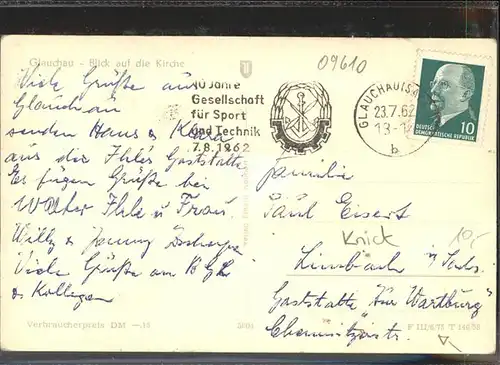 Glauchau - Blick auf die Kirche
09610
Viele Grüße aus
Glauchau
senden Hans &
aus die Ihle's Gaststätte
Es fügen Grüße bei
Walter Ihle u Frau.
Willy &
Viele Grüße am
& Kollegen
10 Jahre
Gesellschaft
für Sport
und Technik
7.8.1962
GLAUCHAU
23.7.62
b
DEUTSCHE
DEMOKRATISCHE REPUBLIK
10
Familie
Paul Eisert
Knick
10,-
Limbach i/ Sachs.
Gaststätte "Zur Wartburg"
Chemnitzerstr.
Verbraucherpreis DM